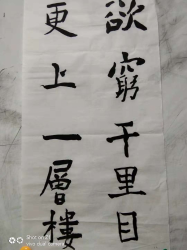 欲窮千里目
更上一層樓
SHOT ON